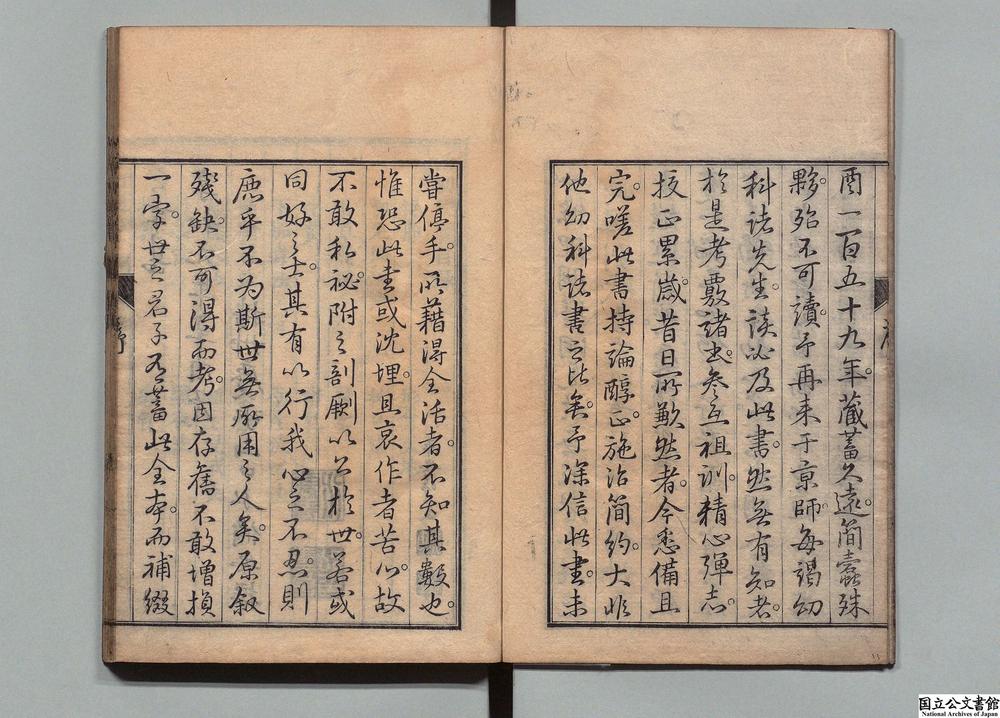 酉一百五十九年。蔵蓄久遠。簡蠹殊
夥。殆不可讀。予再来于京師。每謁幼
科諸先生。談必及此書。然無有知者。
於是考覈諸書。參互祖訓。精心殫志。
挍正累歲。昔日所歉然者。今悉備且
完。嗟此書持論醇正。施治簡約。大非
他幼科諸書之比矣。予深信此書。未
嘗停手。所藉得全活者。不知其數也。
惟恐此書或沈埋。且哀作者苦心。故
不敢私祕。附之剞劂。以公於世。若或
同好之士。其有以行我心之不忍。則
庶乎不為斯世無所用之人矣。原叙
殘缺。不可得而考。因存舊不敢增損
一字。世之君子有蓄此全本。而補綴
序
国立公文書館
National Archives of Japan